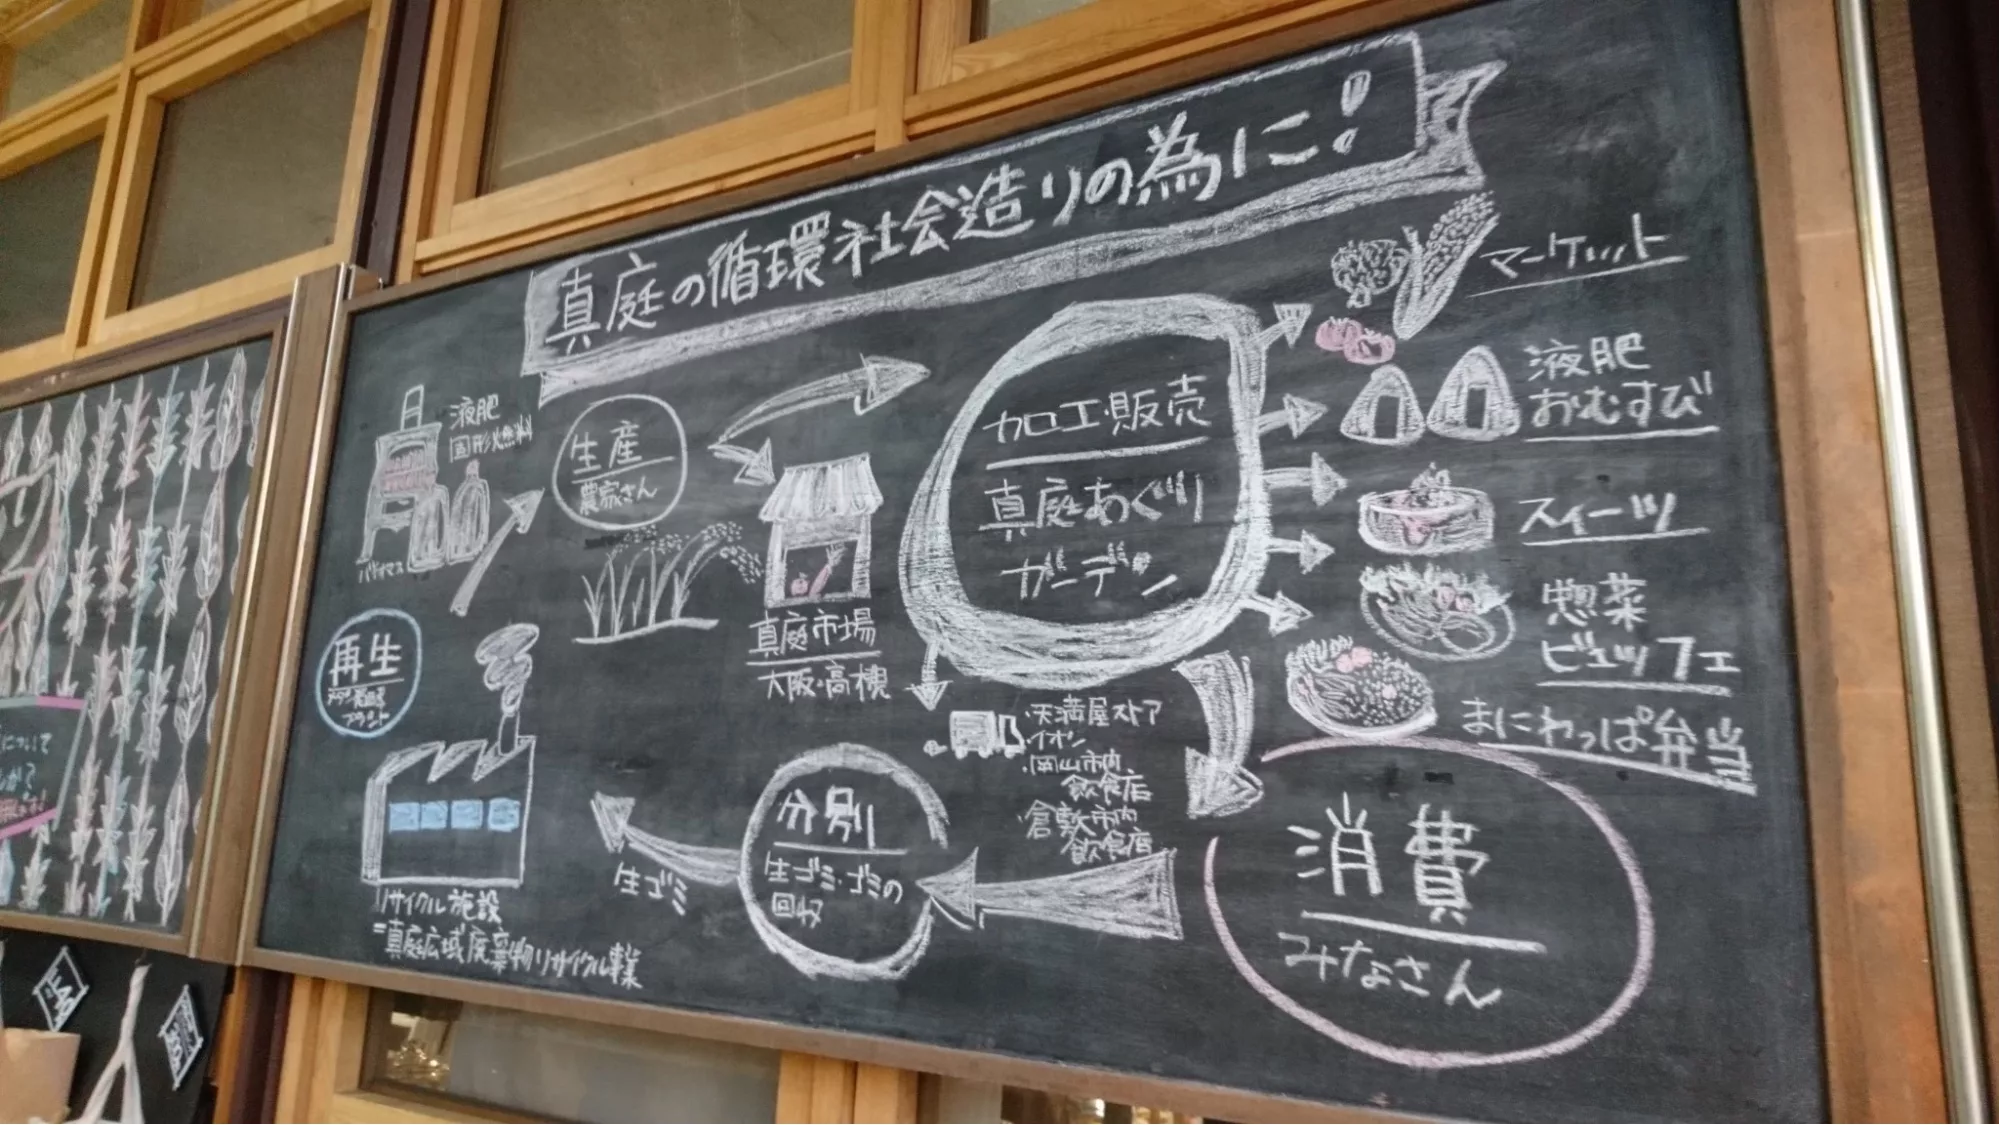 真庭の循環社会造りの為に!
マーケット
液肥
おむすび
スイーツ
惣菜
ビュッフェ
まにわっぱ弁当
加工・販売
真庭あぐり
ガーデン
液肥
固形燃料
バイオマス
生産
農家さん
真庭市場
大阪・高槻
・天満屋ストア
・イオン
・岡山市内
飲食店
・倉敷市内
飲食店
消費
みなさん
分別
生ゴミ・ゴミの
回収
生ゴミ
再生
プラント
リサイクル施設
=真庭広域廃棄物リサイクル事業
について